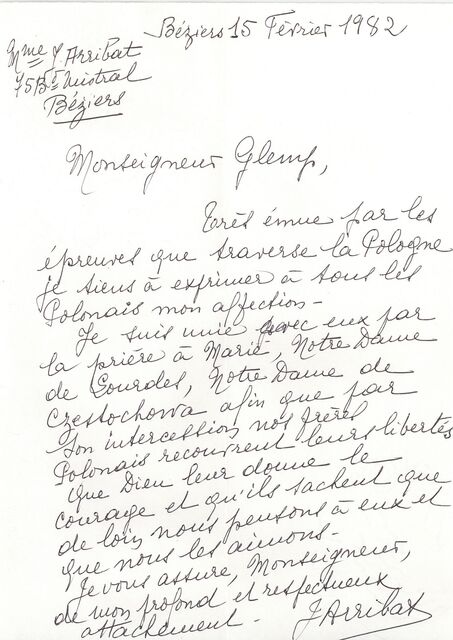 Béziers 15 Février 1982
Mme J. Arribat
75 Bd Mistral
Béziers
Monseigneur Glemp,
Très émue par les
épreuves que traverse la Pologne
je tiens à exprimer à tous les
Polonais mon affection -
Je suis unie avec eux par
la prière à Marie, Notre Dame
de Lourdes, Notre Dame de
Czestochowa afin que par
Son intercession nos frères
Polonais recouvrent leurs libertés
Que Dieu leur donne le
courage et qu'ils sachent que
de loin nous pensons à eux et
que nous les aimons -
Je vous assure, Monseigneur,
de mon profond et respectueux
attachement - J Arribat